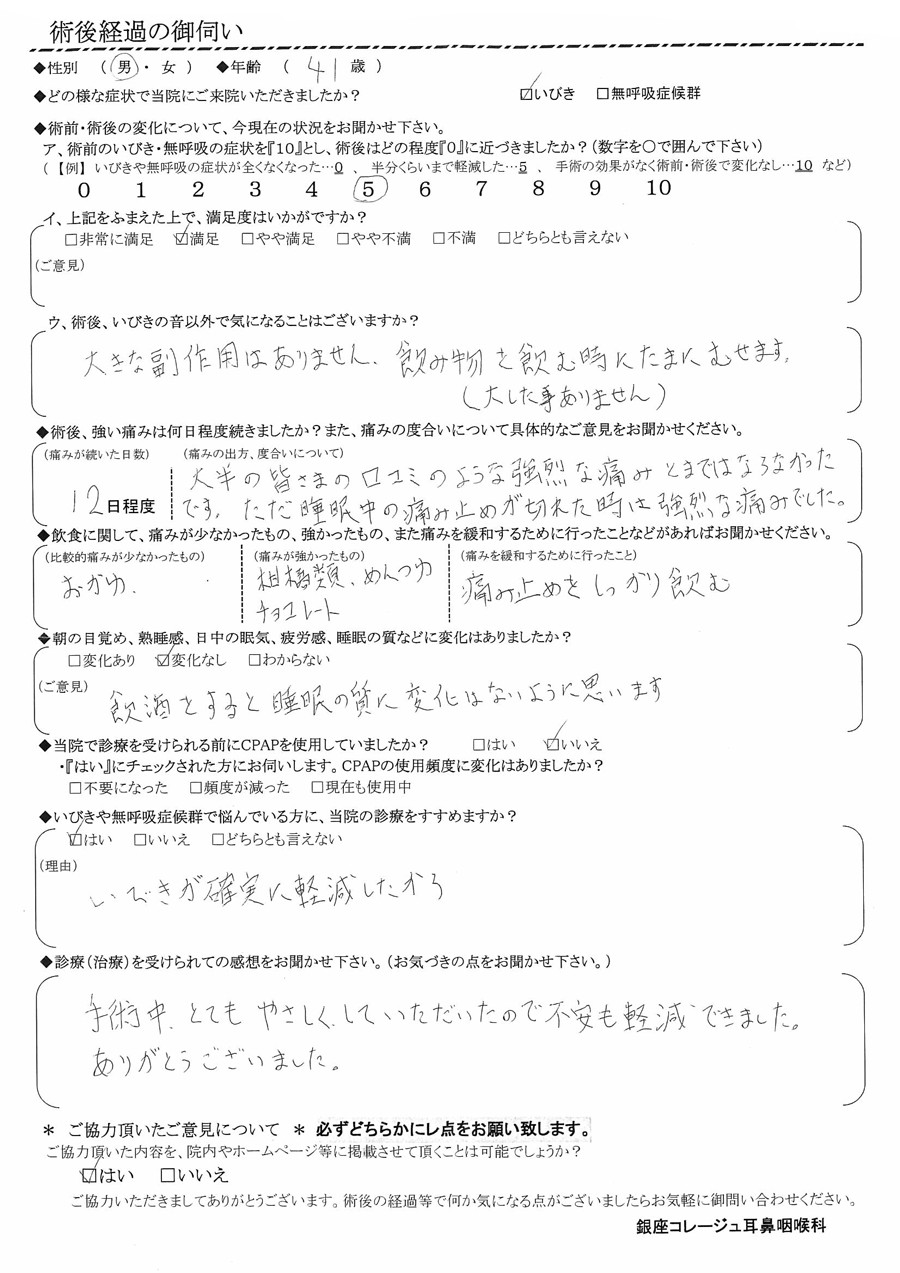 術後経過の御伺い
◆性別 (男・女) ◆年齢 (41歳)
◆どの様な症状で当院にご来院いただきましたか? ☑いびき □無呼吸症候群
◆術前・術後の変化について、今現在の状況をお聞かせ下さい。
ア、術前のいびき・無呼吸の症状を『10』とし、術後はどの程度『0』に近づきましたか?(数字を〇で囲んで下さい)
(【例】いびきや無呼吸の症状が全くなくなった…0 、 半分くらいまで軽減した…5 、 手術の効果がなく術前・術後で変化なし…10 など)
0 1 2 3 4 5 6 7 8 9 10
イ、上記をふまえた上で、満足度はいかがですか?
□非常に満足 ☑満足 □やや満足 □やや不満 □不満 □どちらとも言えない
(ご意見)
ウ、術後、いびきの音以外で気になることはございますか?
大きな副作用はありません、飲み物を飲む時にたまにむせます。
(大した事ありません)
◆術後、強い痛みは何日程度続きましたか?また、痛みの度合いについて具体的なご意見をお聞かせください。
(痛みが続いた日数) (痛みの出方、度合いについて)
大半の皆さまの口コミのような強烈な痛みとまではならなかった
12日程度 です。ただ睡眠中の痛み止めが切れた時は強烈な痛みでした。
◆飲食に関して、痛みが少なかったもの、強かったもの、また痛みを緩和するために行ったことなどがあればお聞かせください。
(比較的痛みが少なかったもの) (痛みが強かったもの) (痛みを緩和するために行ったこと)
おかゆ、 柑橘類、めんつゆ 痛み止めをしっかり飲む
チョコレート
◆朝の目覚め、熟睡感、日中の眠気、疲労感、睡眠の質などに変化はありましたか?
□変化あり ☑変化なし □わからない
(ご意見)
飲酒をすると睡眠の質に変化はないように思います
◆当院で診療を受けられる前にCPAPを使用していましたか? □はい ☑いいえ
・『はい』にチェックされた方にお伺いします。CPAPの使用頻度に変化はありましたか?
□不要になった □頻度が減った □現在も使用中
◆いびきや無呼吸症候群で悩んでいる方に、当院の診療をすすめますか?
☑はい □いいえ □どちらとも言えない
(理由)
いびきが確実に軽減したから
◆診療(治療)を受けられての感想をお聞かせ下さい。(お気づきの点をお聞かせ下さい。)
手術中、とてもやさしく、していただいたので不安も軽減できました。
ありがとうございました。
* ご協力頂いたご意見について * 必ずどちらかにレ点をお願い致します。
ご協力頂いた内容を、院内やホームページ等に掲載させて頂くことは可能でしょうか?
☑はい □いいえ
ご協力いただきましてありがとうございます。術後の経過等で何か気になる点がございましたらお気軽に御問い合わせください。
銀座コレージュ耳鼻咽喉科